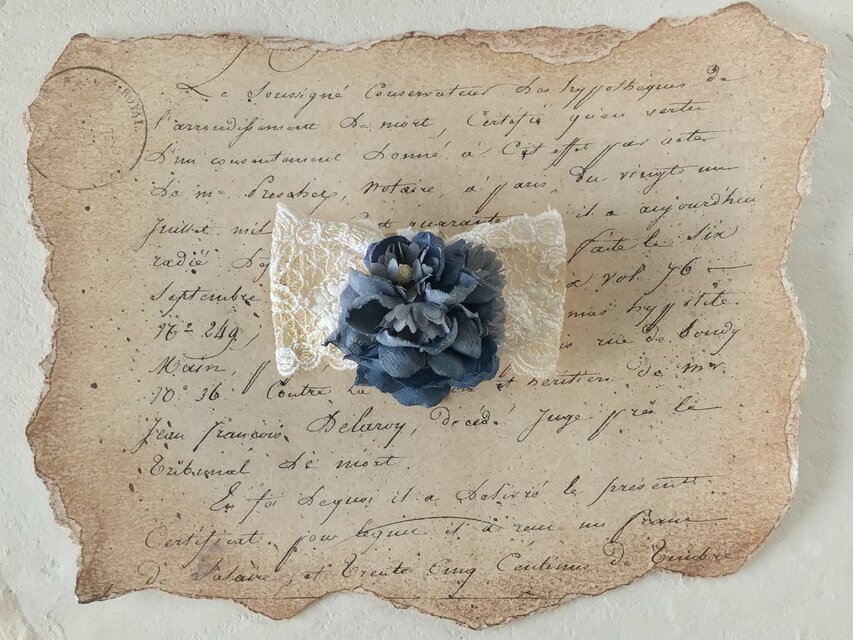 ROYAL
Le Soussigné Conservateur des hypotheques de
l'arrondissement de mort, Certifie qu'en vertu
D'un consentement Donné à Cet effet par acte
De me Preschez, Notaire, à paris, Du vingt un
Juillet mil et quarante il a aujourdhui
radié De faite le Six
Septembre vol 76
N° 249, hyppolite
Main, rue de bondy
N° 36 Contre La et héritiers de mr
Jean françois Delaroy, décedé Juge près le
Tribunal De mort.
En foi Dequoi il a Delivré le présent
Certificat. pour lequel il a recu un franc
de Salaire, et Trente Cinq Centimes De Timbre